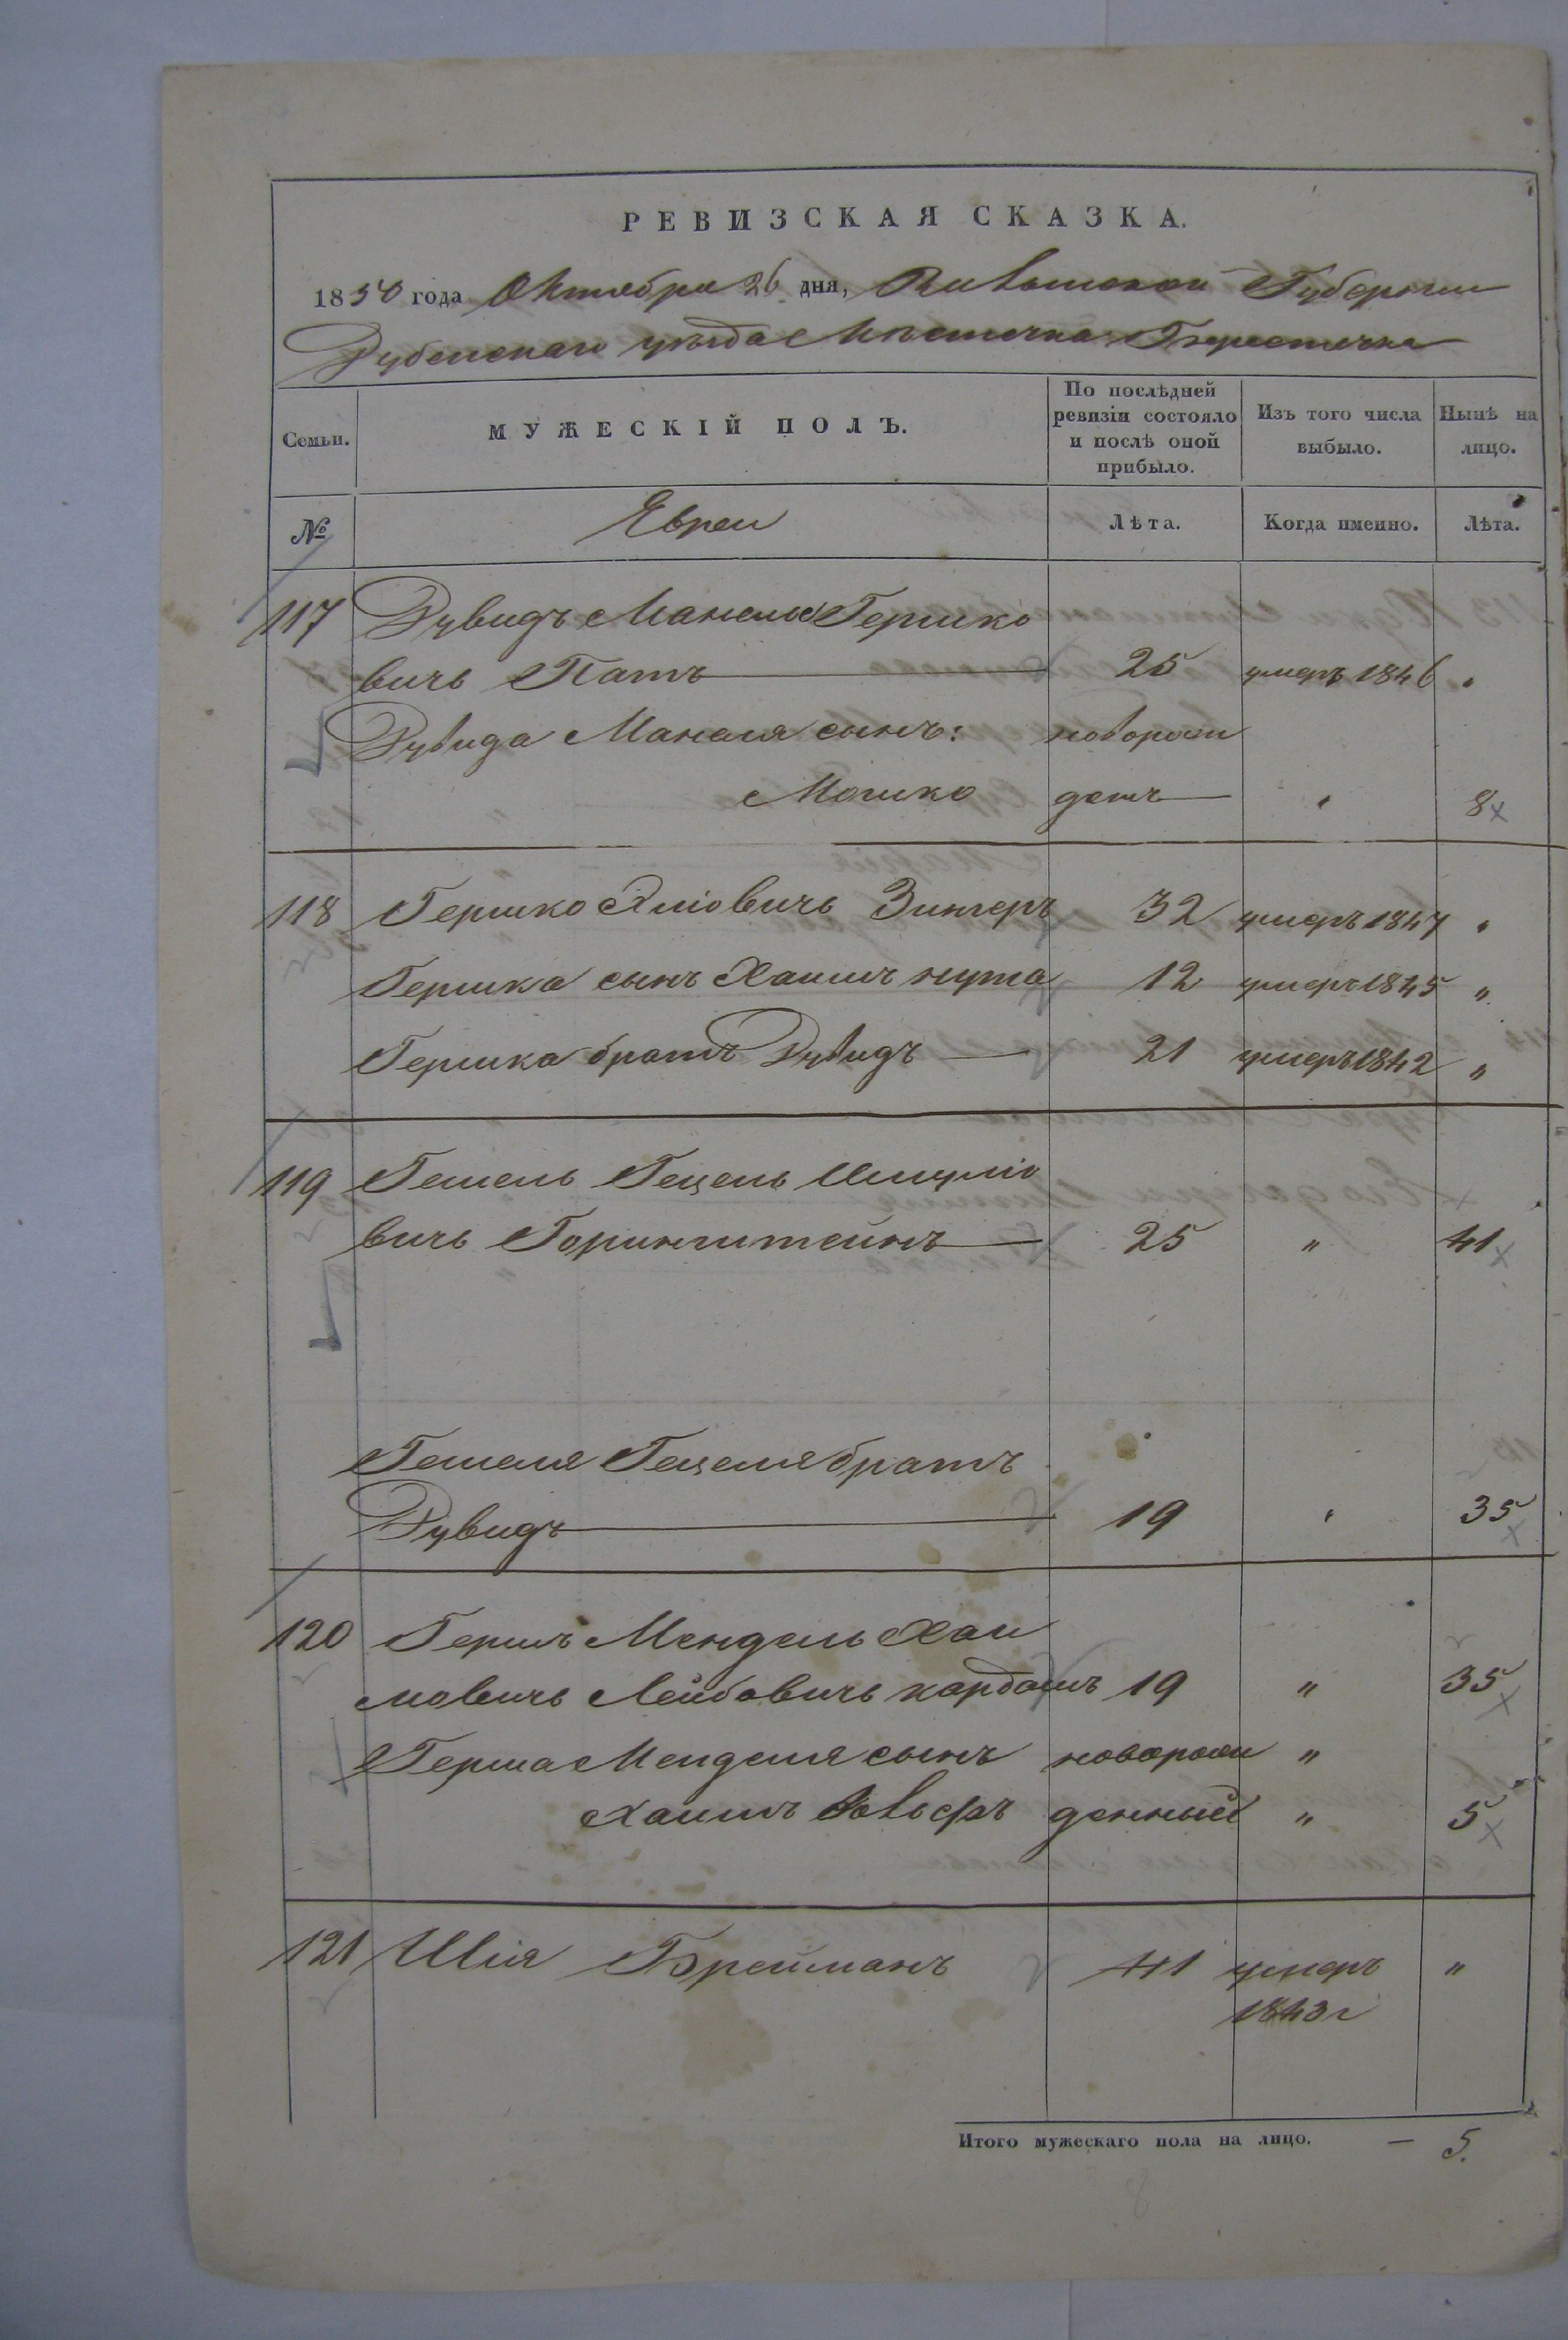 РЕВИЗСКАЯ СКАЗКА.
1850 года Октября 26 дня, Волынской Губернии
Дубенскаго уѣзда Мѣстечка Берестечка
Семьи.
МУЖЕСКІЙ ПОЛЪ.
По послѣдней ревизіи состояло и послѣ оной прибыло.
Изъ того числа выбыло.
Нынѣ на лицо.
№
Евреи
Лѣта.
Когда именно.
Лѣта.
117 Дувидъ Манель Гершко
вичь Патъ 25 умеръ 1846 „
Дувида Манеля сынъ: новорож
Мошко денъ „ 8
118 Гершко Эліовичь Зингеръ 32 умеръ 1847 „
Гершка сынъ Хаимъ нута 12 умеръ 1845 „
Гершка братъ Дувидъ 21 умеръ 1842 „
119 Гешель Гецель Шмуліо
вичь Горинштейнъ 25 „ 41
Гешеля Гецеля братъ
Дувидъ 19 „ 35
120 Гершъ Мендель Хаи
мовичь Лейбовичь кордашъ 19 „ 35
Герша Менделя сынъ новорож „
Хаимъ Вольфъ денный „ 5
121 Шія Брейманъ 41 умеръ „
1843 г
Итого мужескаго пола на лицо. — 5.